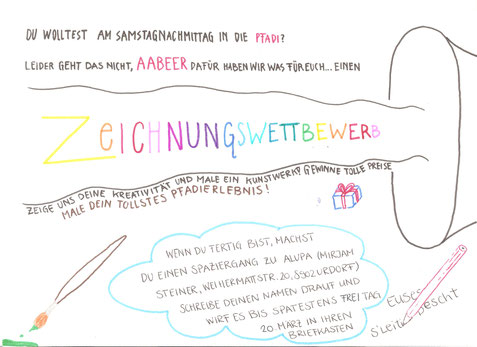 DU WOLLTEST AM SAMSTAGNACHMITTAG IN DIE PFADI?
LEIDER GEHT DAS NICHT, AABEER DAFÜR HABEN WIR WAS FÜR EUCH... EINEN
ZEICHNUNGSWETTBEWERB
ZEIGE UNS DEINE KREATIVITÄT UND MALE EIN KUNSTWERK? GEWINNE TOLLE PREISE
MALE DEIN TOLLSTES PFADIERLEBNIS!
WENN DU FERTIG BIST, MACHST
DU EINEN SPAZIERGANG ZU ALUPA (MIRJAM
STEINER, WEIHERMATTSTR. 20, 8902 URDORF)
SCHREIBE DEINEN NAMEN DRAUF UND
WIRF ES BIS SPÄTESTENS FREITAG
20. MÄRZ IN IHREN
BRIEFKASTEN